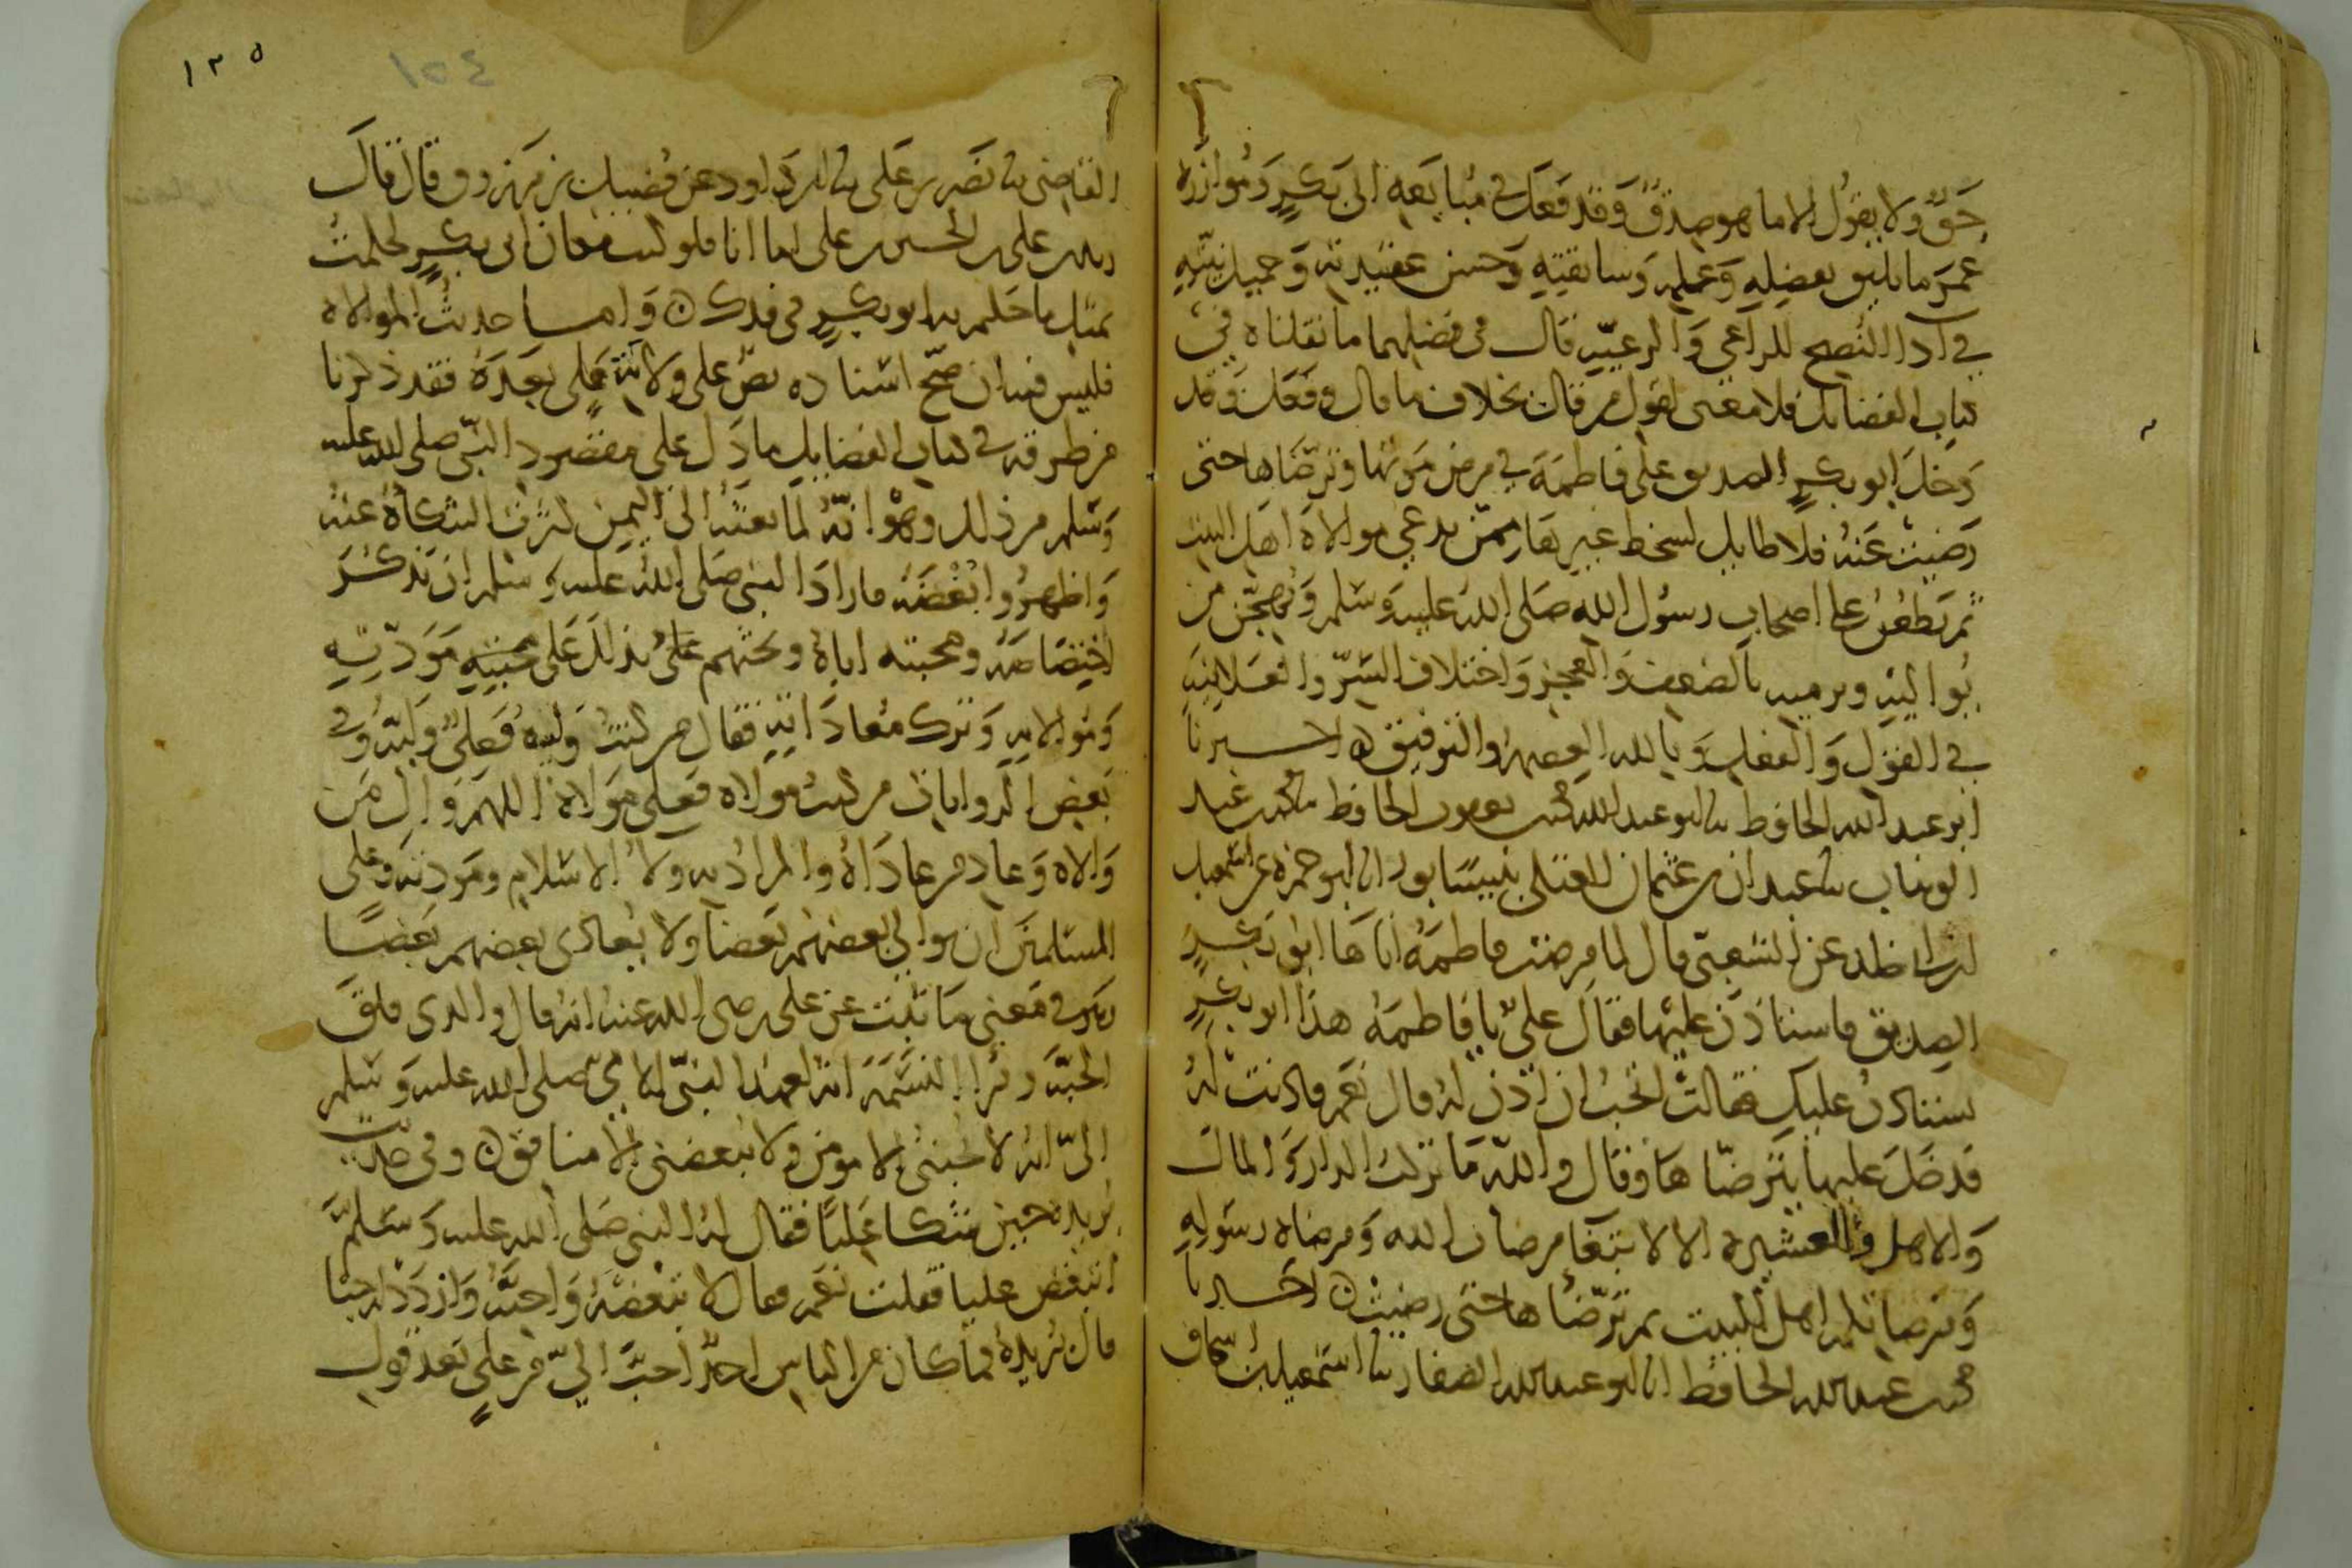 حق ولا يقول الا ما هو صدق وقد فعل في مبايعه ابي بكر وموازره
عمر ما يليق بفضله وعلمه وسابقته وحسن عقيدته وجميل نيته
في ادا النصح للراعي والرعيه وقال في فضلهما ما نقلناه في
كتاب الفضائل فلا معنى لقول من قال بخلاف ما قال وفعل وقد
دخل ابو بكر الصديق على فاطمة في مرض موتها وترضاها حتى
رضيت عنه فلا طايل لسخط غيرها ممن يدعي موالاة اهل البيت
ثم يطعن على اصحاب رسول الله صلى الله عليه وسلم ويهجن من
يواليه ويرميه بالضعف والعجز واختلاف السر والعلانيه
في القول والفعل وبالله العصمه والتوفيق اخبرنا
ابو عبد الله الحافظ ثنا ابو عبد الله محمد بن يعقوب الحافظ ثنا محمد بن عبد
الوهاب ثنا عبدان بن عثمان العتكي بنيسابور انا ابو حمزة عن اسمعيل
ابن ابي خالد عن الشعبي قال لما مرضت فاطمة اتاها ابو بكر
الصديق فاستاذن عليها فقال علي يا فاطمة هذا ابو بكر
يستاذن عليك فقالت اتحب ان اذن له قال نعم فاذنت له
فدخل عليها يترضاها وقال والله ما تركت الدار والمال
والاهل والعشيرة الا لابتغا مرضات الله ومرضاة رسوله
ومرضاتكم اهل البيت ثم ترضاها حتى رضيت اخبرنا
محمد بن عبد الله الحافظ انا ابو عبد الله الصفار ثنا اسمعيل بن اسحاق
١٣٥
١٥٤
القاضي ثنا نصر بن علي ثنا ابن داود عن فضيل بن مرزوق قال قال
زيد بن علي بن الحسين بن علي اما انا فلو كنت مكان ابي بكر لحكمت
بمثل ما حكم به ابو بكر في فدك واما حديث الموالاة
فليس فيه ان صح اسناده نص على ولاية علي بعده فقد ذكرنا
من طرقه في كتاب الفضايل ما دل على مقصود النبي صلى الله عليه
وسلم من ذلك وهو انه لما بعثه الى اليمن كثرت الشكاة عنه
واظهروا بغضه فاراد النبي صلى الله عليه وسلم ان يذكر
اختصاصه به ومحبته اياه ويحثهم بذلك على محبته ومودته
وموالاته وترك معاداته فقال من كنت وليه فعلي وليه وفي
بعض الروايات من كنت مولاه فعلي مولاه اللهم وال من
والاه وعاد من عاداه والمراد به ولا الاسلام ومودته وعلى
المسلمين ان يوالي بعضهم بعضا ولا يعادي بعضهم بعضا
وهو في معنى ما ثبت عن علي رضي الله عنه انه قال والذي فلق
الحبة وبرا النسمة انه لعهد النبي الامي صلى الله عليه وسلم
الي انه لا يحبني الا مومن ولا يبغضني الا منافق وفي حديث
بريدة حين شكا عليا فقال له النبي صلى الله عليه وسلم
اتبغض عليا فقلت نعم فقال لا تبغضه واحبه وازدد له حبا
قال بريدة فما كان من الناس احد احب الي من علي بعد قول